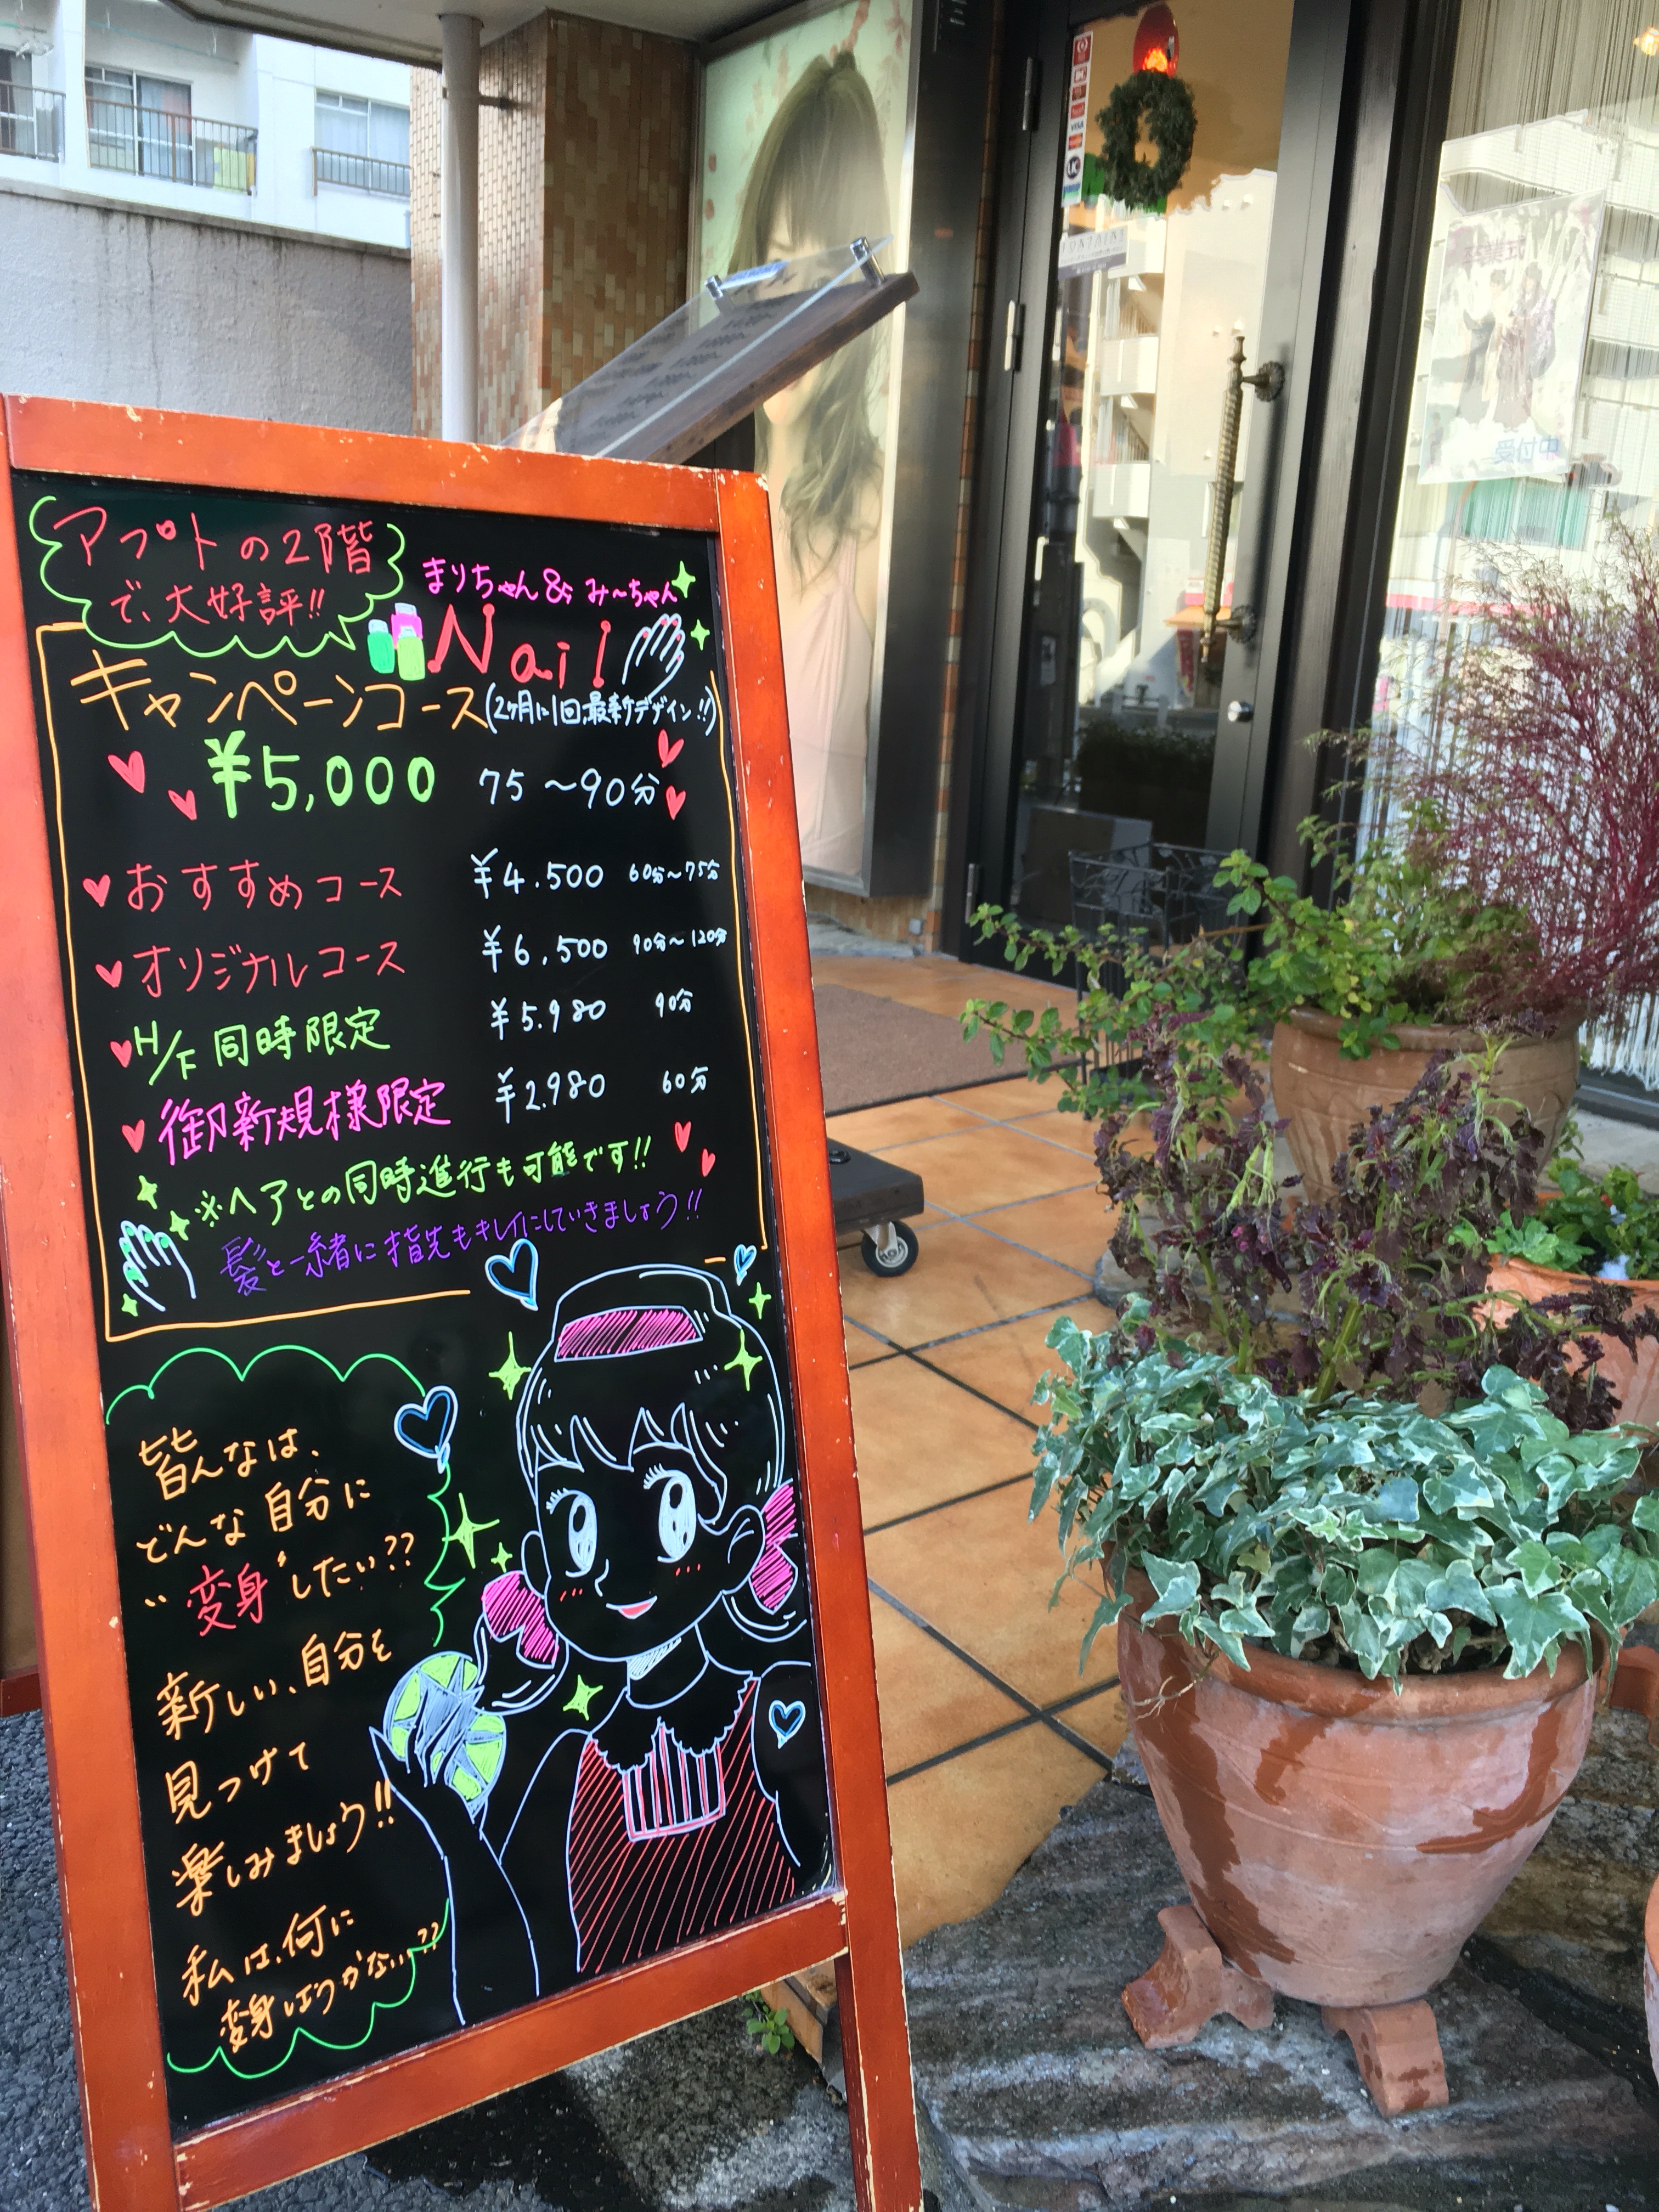 アプトの2階
で、大好評!!
まりちゃん& み〜ちゃん
Nail
キャンペーンコース(2ヶ月に1回、最新デザイン!!)
¥5,000 75〜90分
おすすめコース ¥4.500 60分〜75分
オリジナルコース ¥6.500 90分〜120分
H/F 同時限定 ¥5.980 90分
御新規様限定 ¥2.980 60分
※ヘアとの同時進行も可能です!!
髪と一緒に指先もキレイにしていきましょう!!
皆んなは、
どんな自分に
"変身"したい??
新しい、自分を
見つけて
楽しみましょう!!
私は、何に
変身しようかな…??
VISA
受付中